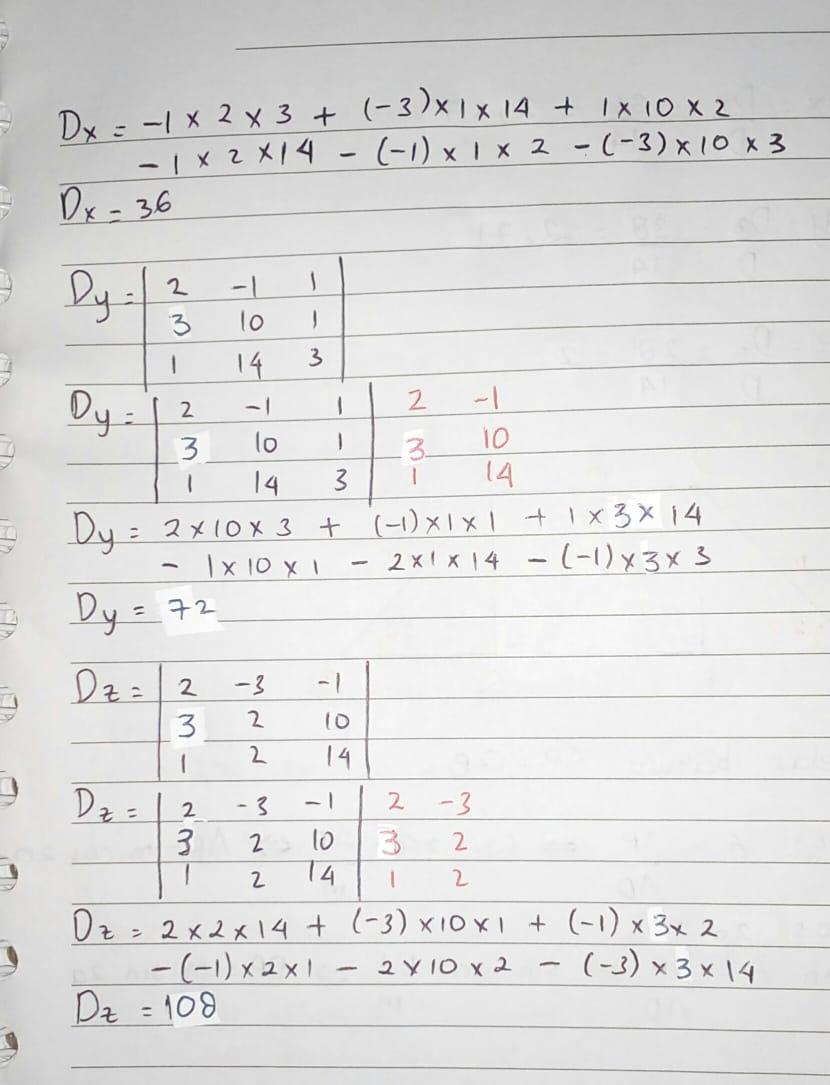 Dx = -1 × 2 × 3 + (-3) × 1 × 14 + 1 × 10 × 2
- 1 × 2 × 14 - (-1) × 1 × 2 - (-3) × 10 × 3
Dx = 36
Dy = | 2 -1 1 |
3 10 1
1 14 3
Dy = | 2 -1 1 | 2 -1
3 10 1 3 10
1 14 3 1 14
Dy = 2 × 10 × 3 + (-1) × 1 × 1 + 1 × 3 × 14
- 1 × 10 × 1 - 2 × 1 × 14 - (-1) × 3 × 3
Dy = 72
Dz = | 2 -3 -1 |
3 2 10
1 2 14
Dz = | 2 -3 -1 | 2 -3
3 2 10 3 2
1 2 14 1 2
Dz = 2 × 2 × 14 + (-3) × 10 × 1 + (-1) × 3 × 2
- (-1) × 2 × 1 - 2 × 10 × 2 - (-3) × 3 × 14
Dz = 108